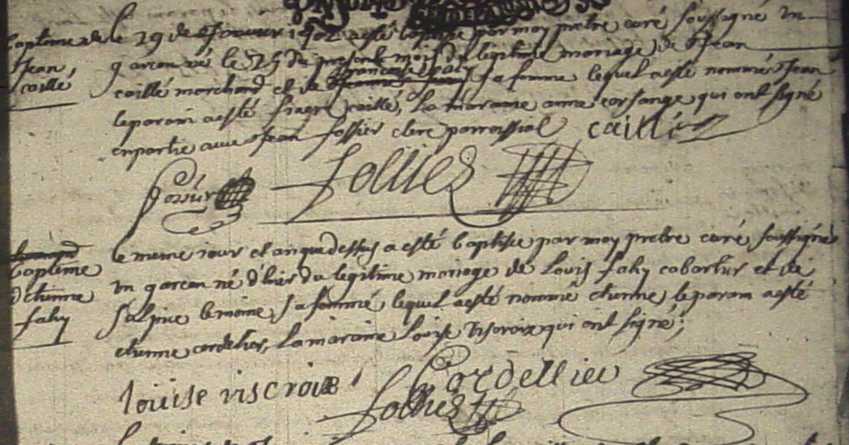 Baptême de
Jean
caillé
le 29 de 1702 a esté baptisé par moy pretre curé soussigné un
garcon né le 25 du present mois du legitime mariage de Jean
caillé marchand et de sa femme lequel a esté nommé Jean
le parain a esté fiacre caillé, la maraine anne qui ont signé
en partie avec Jean fossier clerc parroissial caillé
fossier follies
Baptême
d'etienne
fahy
le meme jour et an que dessus a esté baptisé par moy pretre curé soussigné
un garcon né d'hier du legitime mariage de Louis fahy cabartier et de
lemoine sa femme lequel a esté nommé etienne le parain a esté
etienne cordelier, la maraine Louise viscroix qui ont signé;
louise viscroix Cordellier
follies